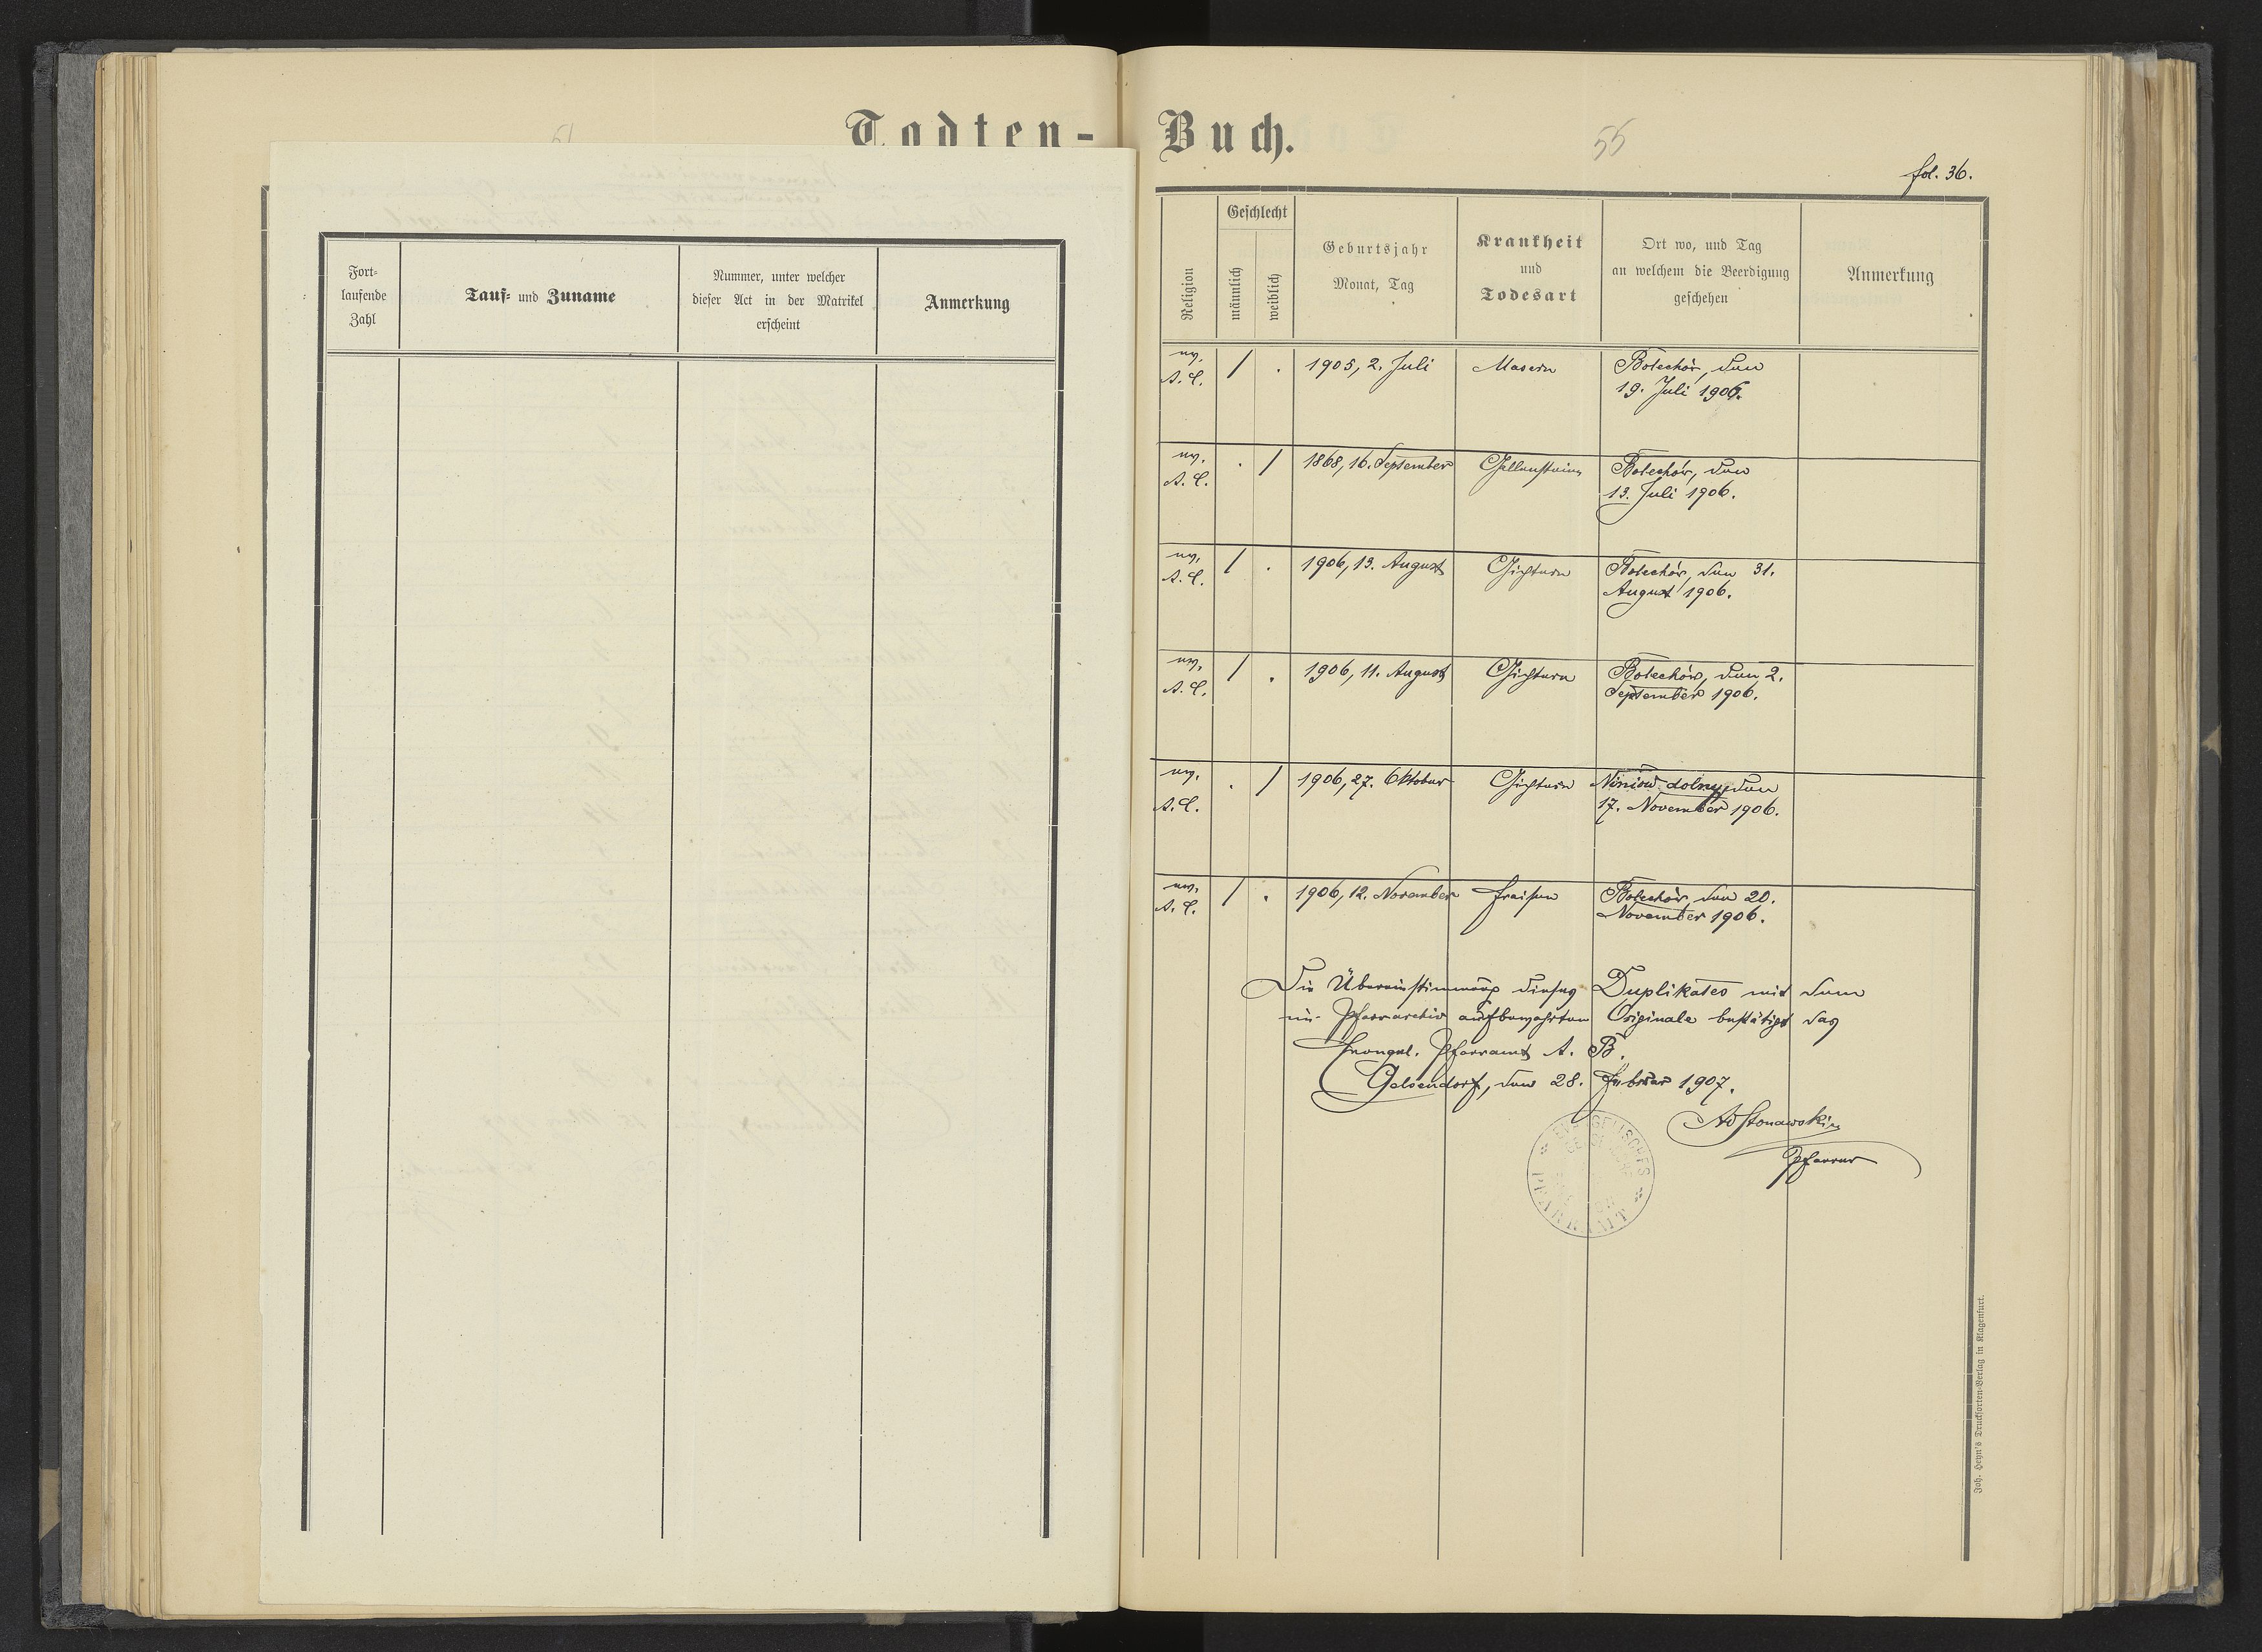 Todten-
Buch.
51
55
fol. 36.
Fort-
laufende
Zahl
Tauf- und Zuname
Nummer, unter welcher
dieser Act in der Matrikel
erscheint
Anmerkung
Religion
Geschlecht
männlich
weiblich
Geburtsjahr
Monat, Tag
Krankheit
und
Todesart
Ort wo, und Tag
an welchem die Beerdigung
geschehen
Anmerkung
ev.
A. C.
/ .
1905, 2. Juli
Masern
Bolechów, den
19. Juli 1906.
ev.
A. C.
. /
1868, 16. September
Gallensteine
Bolechów, den
13. Juli 1906.
ev.
A. C.
/ .
1906, 13. August
Gichtern
Bolechów, den 31.
August 1906.
ev.
A. C.
/ .
1906, 11. August
Gichtern
Bolechów, den 2.
September 1906.
ev.
A. C.
. /
1906, 27. Oktober
Gichtern
Niniów dolny, den
17. November 1906.
ev.
A. C.
/ .
1906, 12. November
Fraisen
Bolechów, den 20.
November 1906.
Die Übereinstimmung dieses Duplikates mit dem
im Pfarrarchiv aufbewahrten Originale bestätigt das
Evangel. Pfarramt A. B.
Gelsendorf, den 28. Februar 1907.
Stonawski
Pfarrer
EVANGELISCHES
PFARRAMT
Joh. Heyn's Drucksorten-Verlag in Klagenfurt.